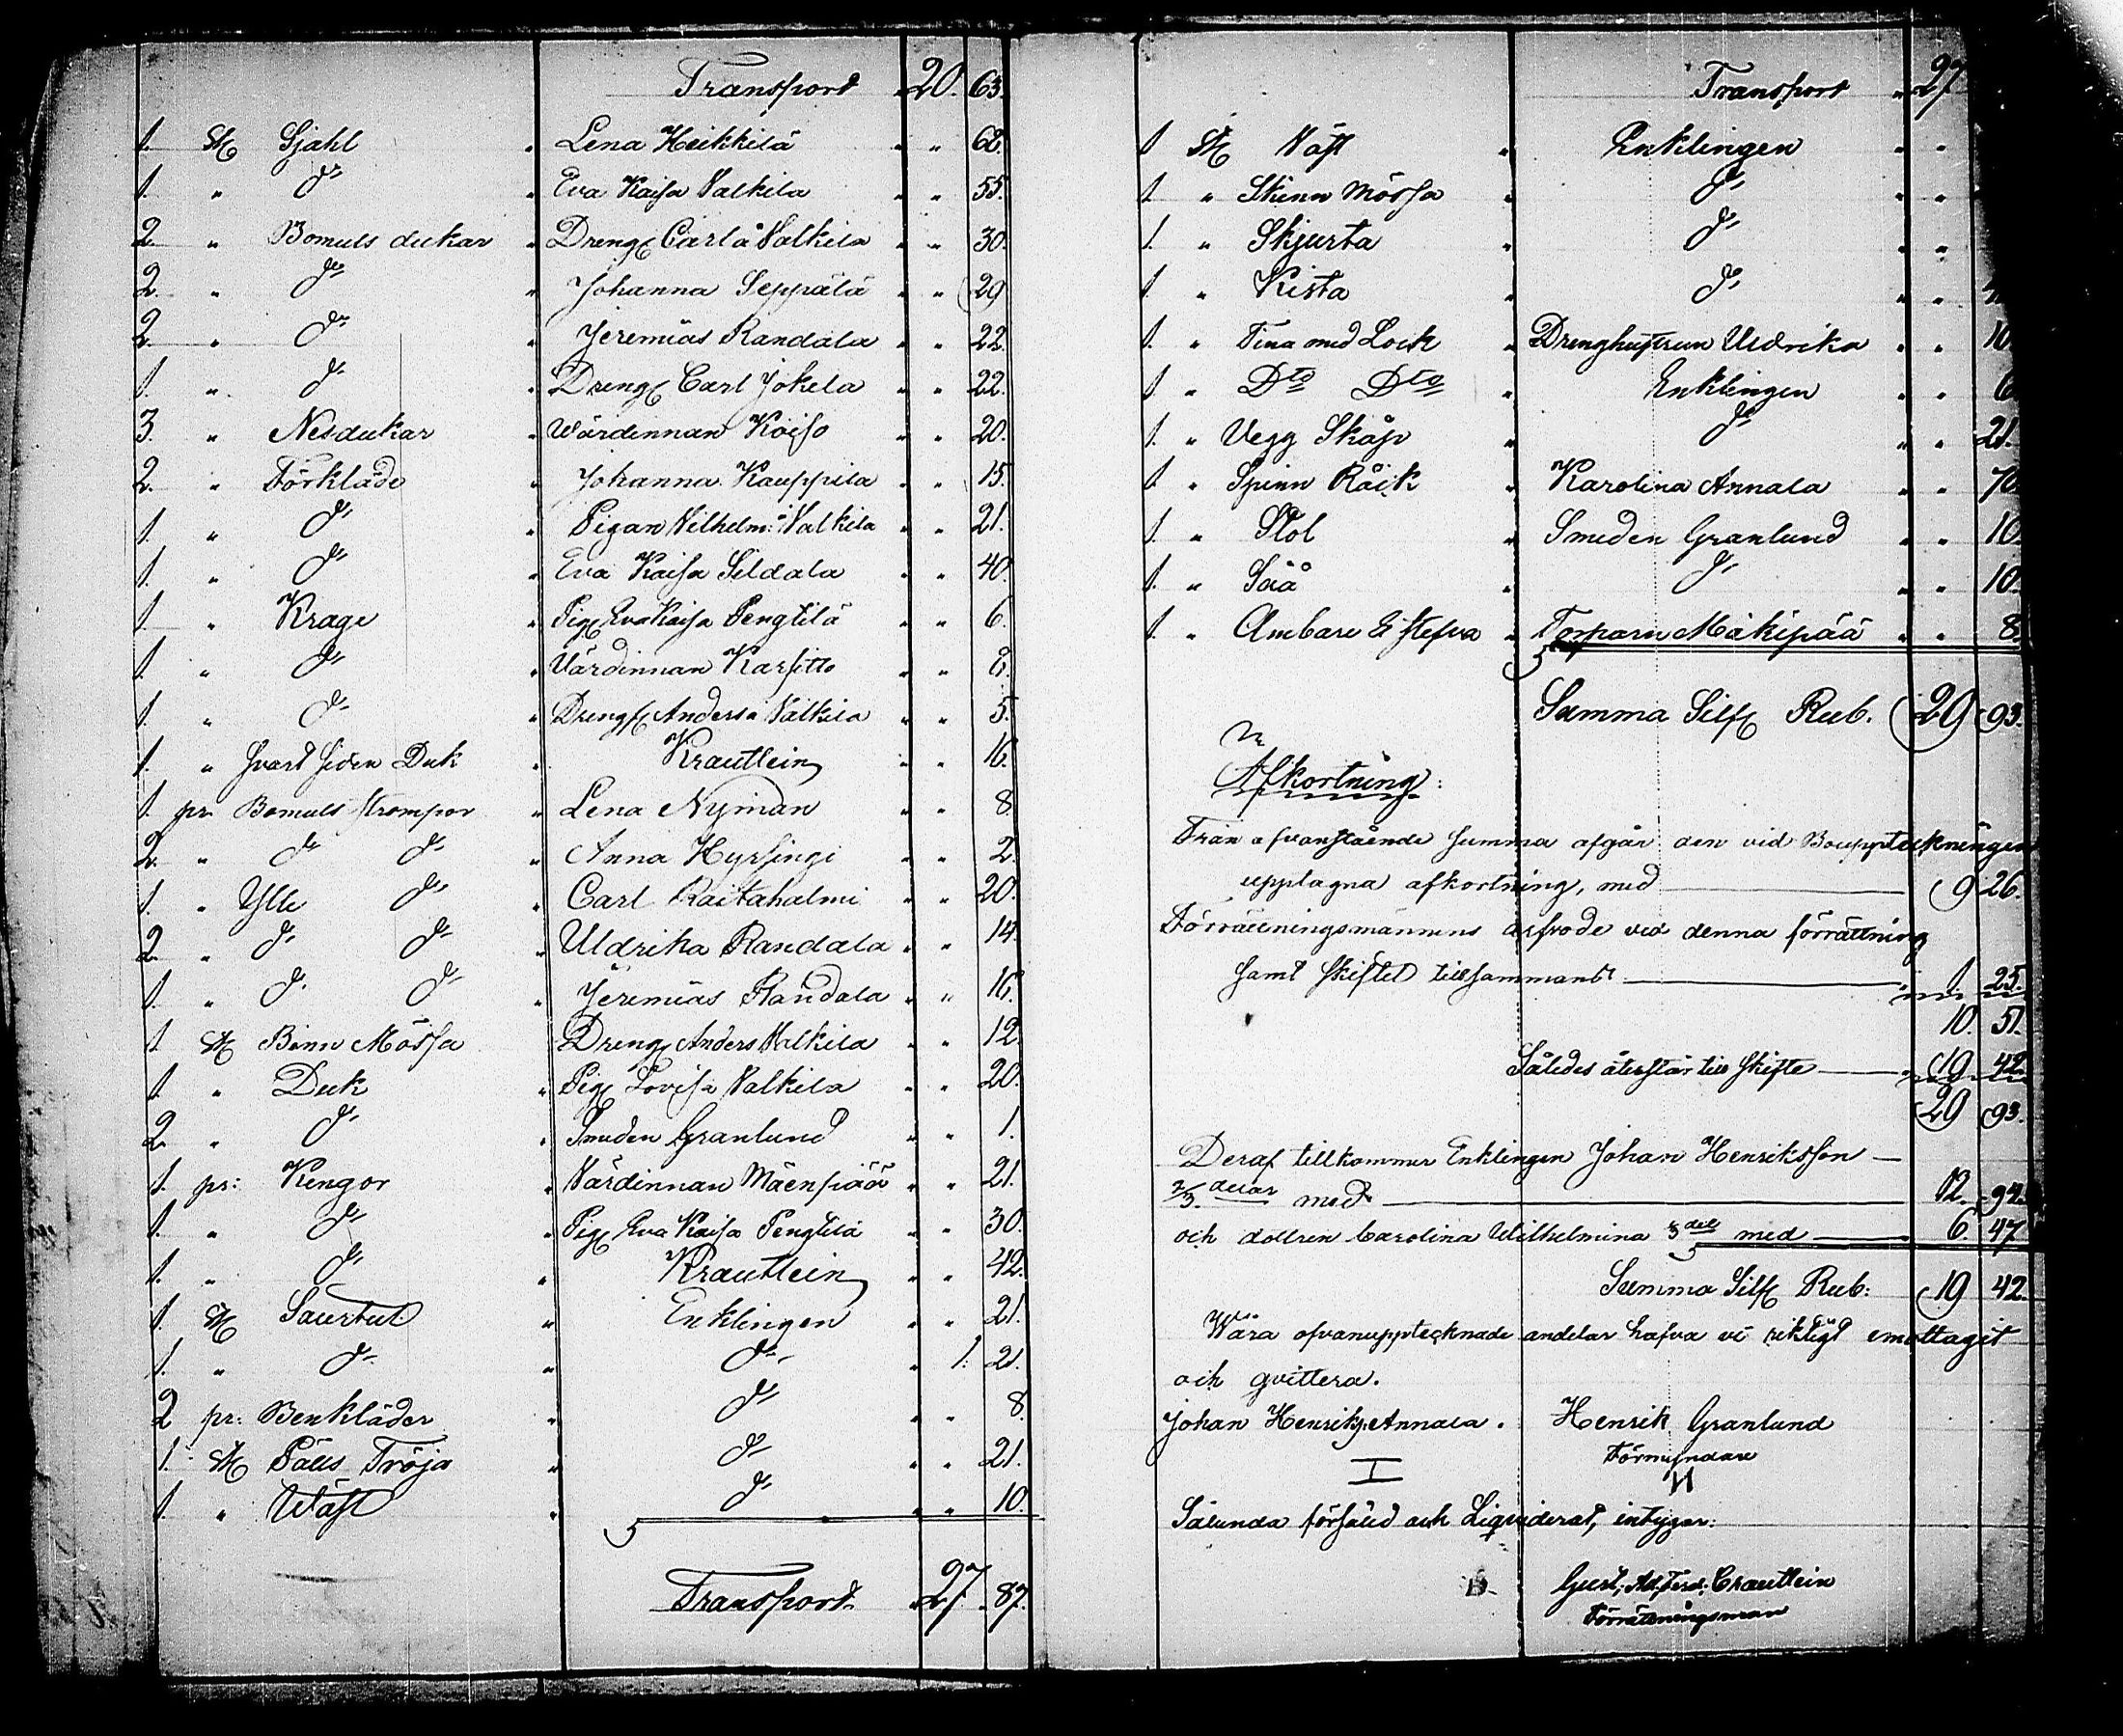 Transport " 20. 63.
1. St Sjahl " Lena Heikkilä " " 62.
1. " do " Eva Kaisa Valkila " " 55.
2. " Bomuls dukar " Dreng Carl å Valkila " " 30.
2. " do " Johanna Seppälä " " 29
2. " do " Jeremias Randala " " 22.
1. " do " Dreng Carl Jokela " " 22.
3. " Nesdukar " Wärdinnan Koiso " " 20.
2. " Förkläde " Johanna Kauppila " " 15.
1. " do " Pigan Vilhelm: Valkila " " 21.
1. " do " Eva Kaisa Sildala " " 40.
1. " Krage " Pig Eva Kaisa Pengtilä " " 6.
1. " do " Värdinnan Karsitto " " 8.
1. " do " Dreng Anders å Valkila " " 5.
1. " Svart siden Duk " Krautlein " " 16.
1. pr Bomuls strompor " Lena Nyman " " 8.
2. " do do " Anna Hyrsingi " " 2.
1. " Ylle do " Carl Raitaholmi " " 20.
2. " do do " Uldrika Randala " " 14.
1. " do do " Jeremias Randala " " 16.
1. St Binn Mössa Dreng Anders Valkila " " 12.
1. " Duk " Pig Lovisa Valkila " " 20.
2. " do " Smeden Granlund " " 1.
1. pr: Kengor " Värdinnan Mäenpää " " 21.
1. " do " Pig Eva Kaisa Pengtilä " " 30.
1. " do " Krautlein " " 42.
1. St Saurtut " Enklingen " " 21.
1. " do " do " 1. 21.
2 pr: Benkläder " do " " 8.
1. St Pälls Tröja " do " " 21.
1. " Wäst " do " " 10.
Transport " 27 " 87.
Transport " 27
1 St Väst " Enklingen " "
1. " Skinn Mössa " do " "
1. " Skjurta " do " "
1. " Kista " do " "
1. " Tina med Lock " Drenghustrun Uldrika " " 10
1. " Dto Dto " Enklingen " " 6
1. " Vegg Skåp " do " " 21.
1. " Spinn Råck " Karolina Annala " " 70
1. " Stol " Smeden Granlund " " 10.
1. " Såå " do " " 10.
1. " Ambare & stefva " Torparn Mäkipää " " 8.
Summa Silf Rub. 29 93.
Afkortning:
Från ofvanstående summa afgår den vid Bouppteckningen
upptagna afkortning, med 9 26.
Förrättningsmännens arfvode vid denna förrättning
samt skiftet tillsammans " 1 25.
10. 51.
Således återstår till skifte " 19 42.
29 93.
Deraf tillkommer Enklingen Johan Henriksson
2/3 delar med 12. 94.
och dottren Carolina Wilhelmina 1/3 del med 6. 47
Summa Silf Rub: 19 42.
Våra ofvanupptecknade andelar hafva vi riktigt emottagit
och qvittera.
Johan Henriks: Annala. Henrik Granlund
Förmyndare
Sålunda försåld och Liqviderat, intygar:
Gust, Ad. Ferd: Crautlein
Förrättningsman